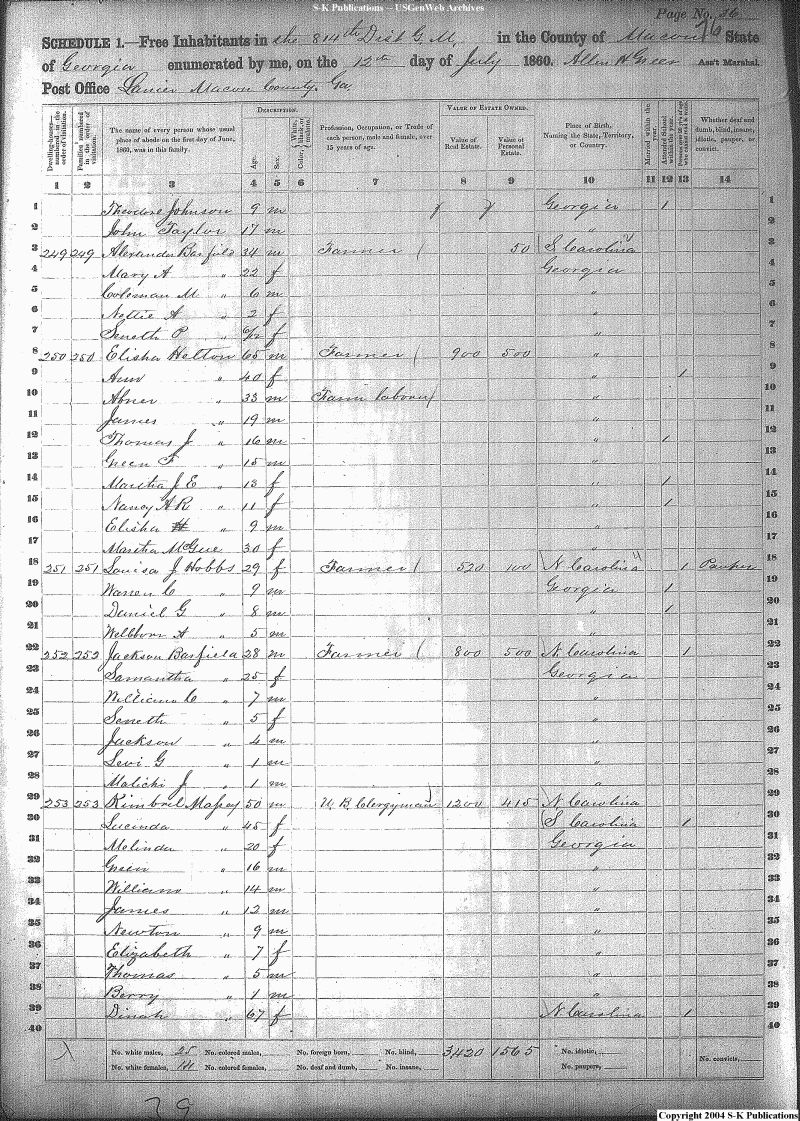 S-K Publications -- USGenWeb Archives
Page No. 36
SCHEDULE 1.—Free Inhabitants in the 814th Dist G M, in the County of Macon State
of Georgia enumerated by me, on the 12th day of July 1860. Allen H Greer Ass't Marshal.
Post Office Lanier Macon County. Ga,
Dwelling-houses numbered in the order of visitation. Families numbered in the order of visitation. The name of every person whose usual place of abode on the first day of June, 1860, was in this family. Description. Age. Sex. Color, White, black, or mulatto. Profession, Occupation, or Trade of each person, male and female, over 15 years of age. Value of Estate Owned. Value of Real Estate. Value of Personal Estate. Place of Birth, Naming the State, Territory, or Country. Married within the year. Attended School within the year. Whether deaf and dumb, blind, insane, idiotic, pauper, or convict.
1 2 3 4 5 6 7 8 9 10 11 12 13 14
1 Theodore Johnson 9 m Georgia 1 1
2 John Taylor 17 m " 2
3 249 249 Alexander Barfield 34 m Farmer 50 S Carolina 3
4 Mary A " 22 f Georgia 4
5 Coleman M " 6 m " 5
6 Nettie A " 2 f " 6
7 Seneth P " 6/12 f " 7
8 250 250 Elisha Helton 65 m Farmer 900 500 " 8
9 Ann " 40 f " 1 9
10 Abner " 33 m Farm laborer " 10
11 James " 19 m " 11
12 Thomas J " 16 m " 1 12
13 Green F " 15 m " 13
14 Martha J E " 13 f " 1 14
15 Nancy A R " 11 f " 1 15
16 Elisha H " 9 m " 16
17 Martha McGue 30 f " 17
18 251 251 Louisa J Hobbs 29 f Farmer 520 100 N Carolina 1 Pauper 18
19 Warren C " 9 m Georgia 1 19
20 Daniel G " 8 m " 1 20
21 Wellborn A " 5 m " 21
22 252 252 Jackson Barfield 28 m Farmer 800 500 N Carolina 1 22
23 Samantha " 25 f Georgia 23
24 William C " 7 m " 24
25 Seneth " 5 f " 25
26 Jackson " 4 m " 26
27 Levi G " 1 m " 27
28 Malichi J " 1 m " 28
29 253 253 Kimbrel Massey 50 m U. B. Clergyman 1200 415 N Carolina 29
30 Lucinda " 45 f S Carolina 1 30
31 Melinda " 20 f Georgia 31
32 Green " 16 m " 32
33 William " 14 m " 33
34 James " 12 m " 34
35 Newton " 9 m " 35
36 Elizabeth " 7 f " 36
37 Thomas " 5 m " 37
38 Berry " 1 m " 38
39 Dinah " 67 f N Carolina 1 39
40 40
No. white males, 25 No. colored males, No. foreign born, No. blind, 3420 1565 No. idiotic,
No. white females, 14 No. colored females, No. deaf and dumb, No. insane, No. paupers, No. convicts,
29
Copyright 2004 S-K Publications